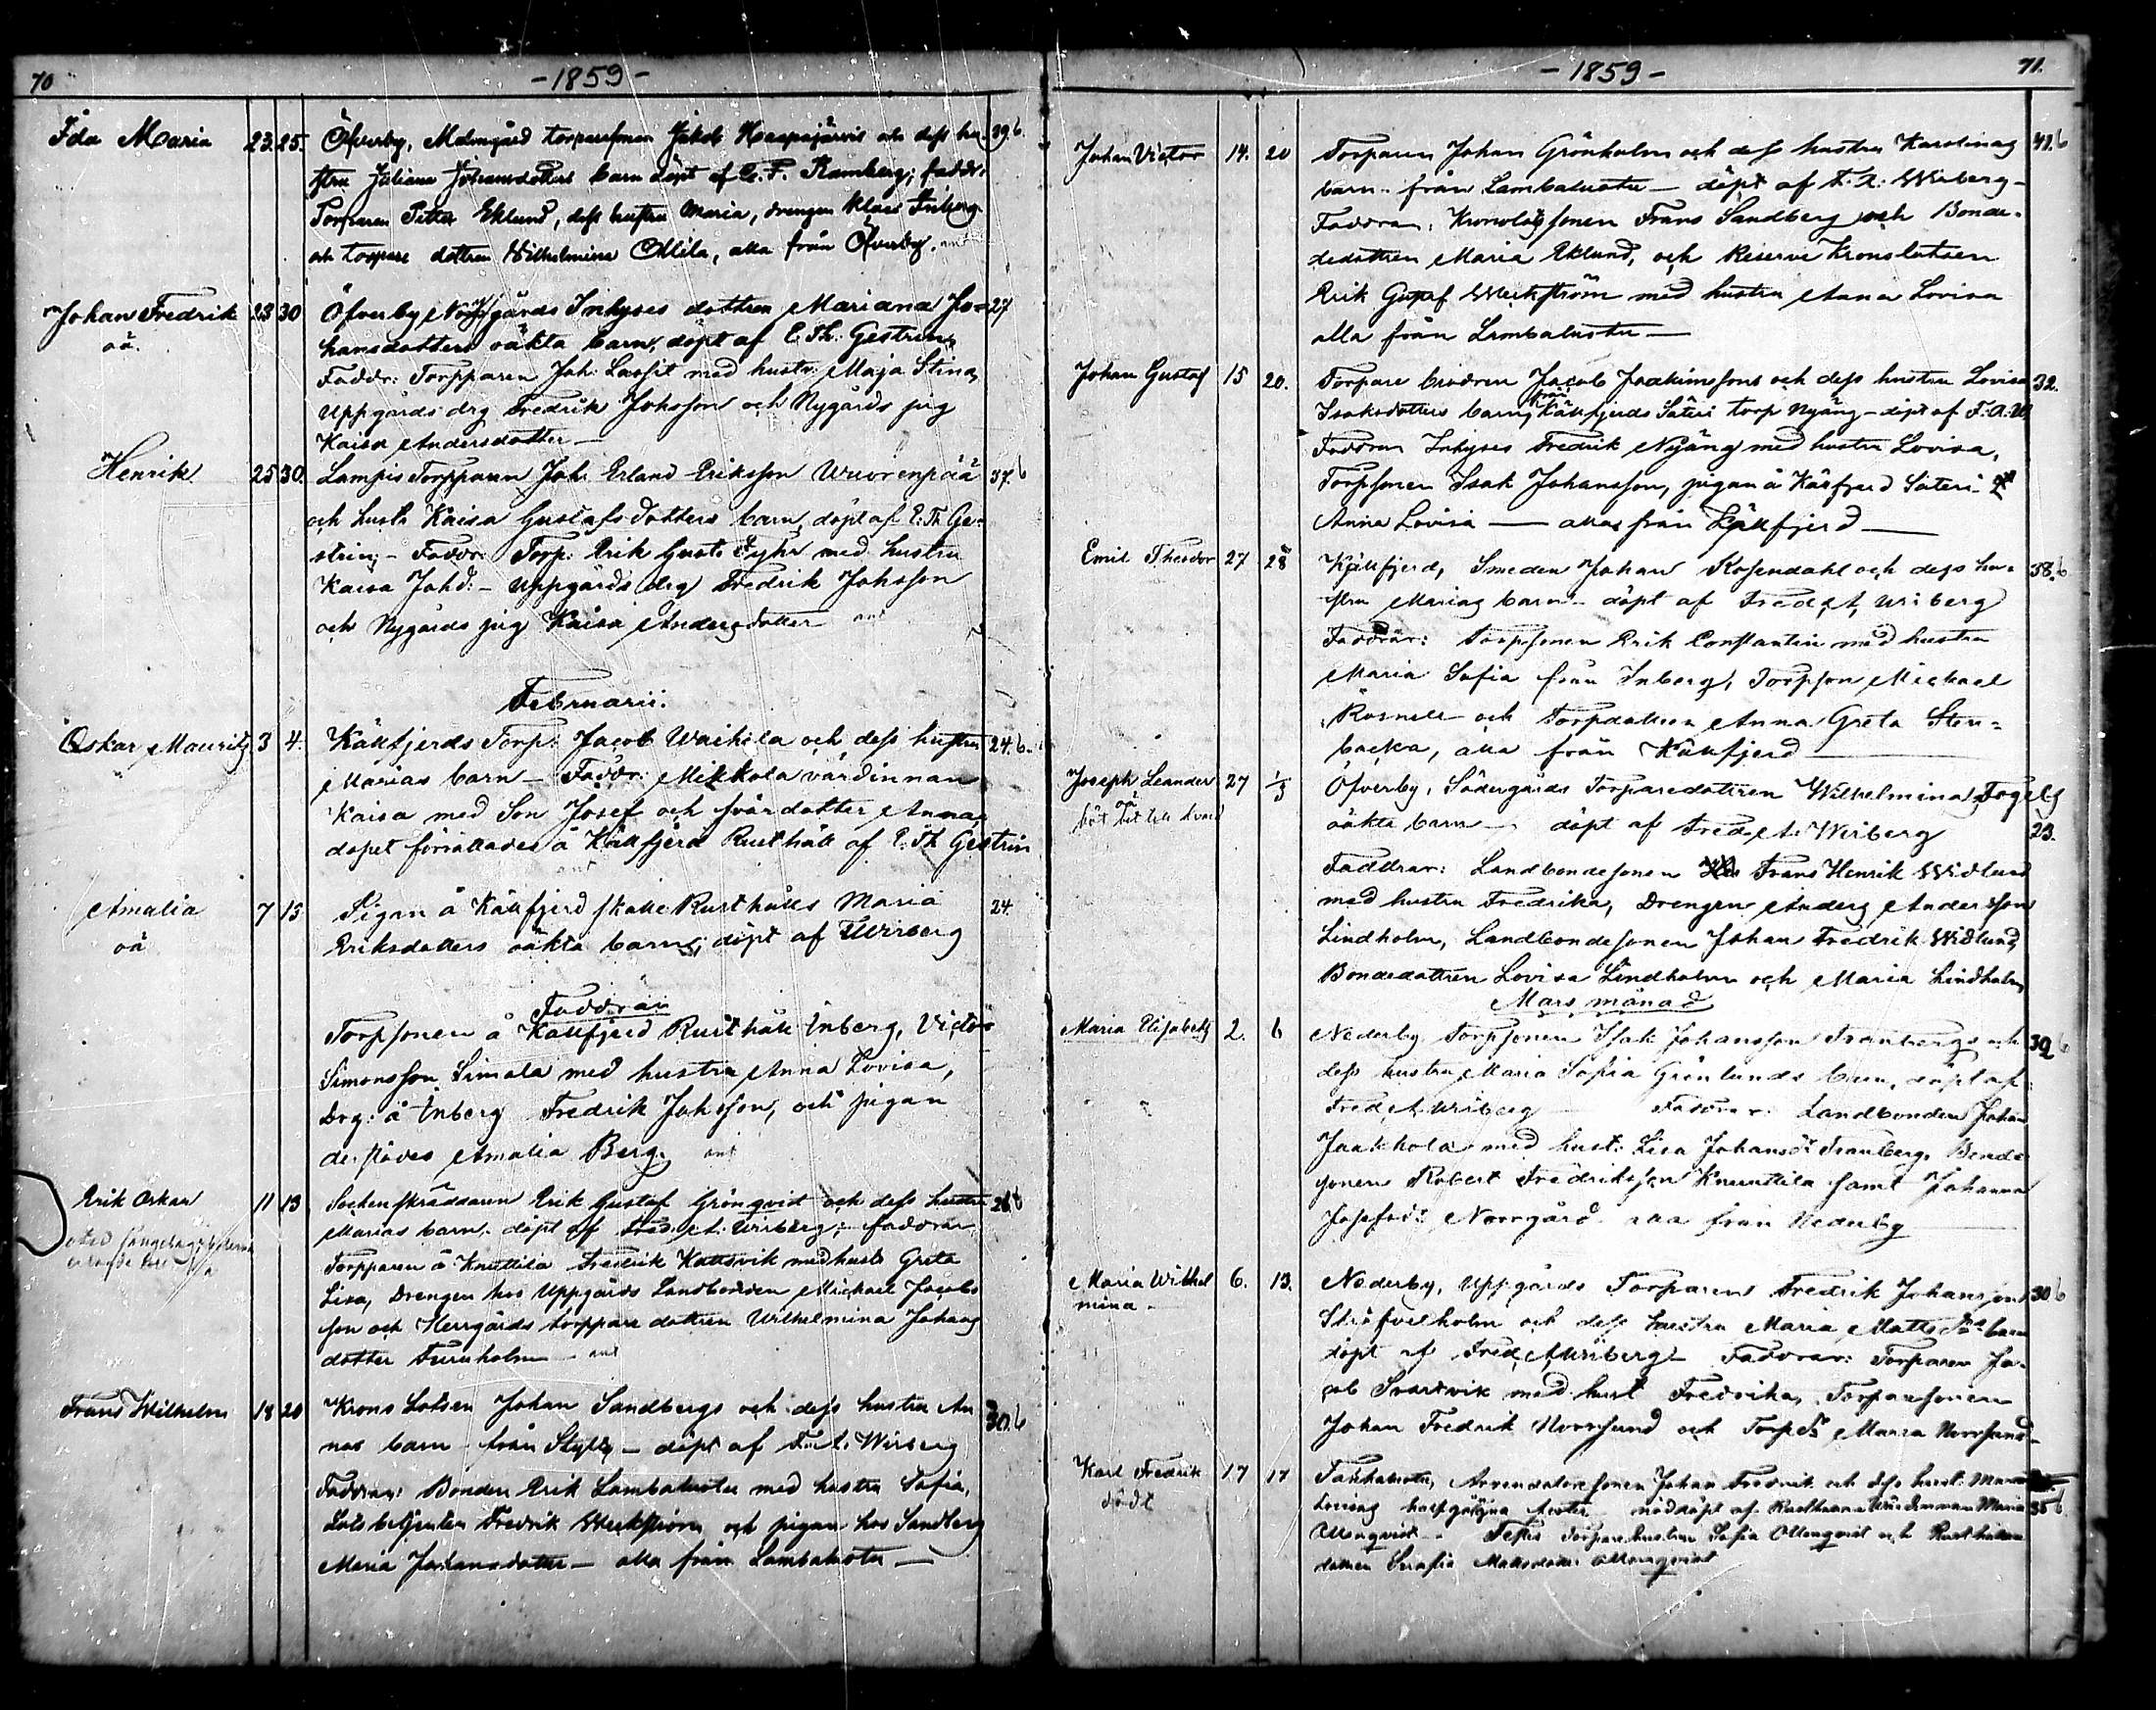 70
-1859-
Ida Maria 23. 25. Öfverby, Malmgård torparesonen Jakob Haapajärvis och dess hu- 39.6.
stru Juliana Johansdotters barn döpt af C. F. Ramberg; faddr.
Torparen Petter Eklund, dess hustru Maria, drengen Klas Friberg
och torpare dottren Wilhelmina Ollila, alla från Öfverby.
Johan Fredrik 23 30 Öfverby Norrgårds Inhyses dottren Mariana Jo= 27
oä. hansdotters oäkta barn, döpt af E. Th. Gestrin,
Faddr: Torpparen Joh: Lassit med hustr: Maja Stina,
Uppgårds drg Fredrik Johsson och Nygårds pig
Kaisa Andersdotter —
Henrik 25 30. Lampis Torpparen Joh: Erland Eriksson Wuorenpää 37.6
och hustr Kaisa Gustafsdotters barn, döpt af E. Th Ge-
strin; - Faddr: Torp: Erik Gust: Fyhr med hustru
Kaisa Johd: - Uppgårds drg Fredrik Johsson
och Nygårds pig Kaisa Andersdotter ant
Februarii.
Oskar Mauritz 3 4. Källfjerds Torp: Jacob Waihela och dess hustru 24.6.
Marias barn — Faddr: Mikkola värdinnan
Kaisa med Son Josef och svärdotter Anna,
dopet förrättades å Källfjerd Rusthåll af E. Th Gestrin
Amalia 7 13 Pigan å Källfjerd skatte Rusthålls Maria 24.
oä Eriksdotters oäkta barn; döpt af FWirberg
Faddrar
Torpsonen å Källfjerd Rusthåll Inberg, Victor
Simonsson Simola med hustru Anna Lovisa,
Drg: å Inberg Fredrik Johsson, och pigan
derstädes Amalia Berg. ant
Erik Oskar 11 13 Sockenskräddaren Erik Gustaf Grönqvist och dess hustru 26.6
Marias barn, döpt af Fred. A. Wirberg; - faddrar
Torpparen å Knuttila Fredrik Kattsvik med hustr Greta
Lisa, Drengen hos Uppgårds Landbonden Michael Jacobs
son och Herrgårds torppare dottren Wilhelmina Johans
dotter Furuholm — ant
Frans Wilhelm 18 20 Krons Lotsen Johan Sandbergs och dess hustru An 30.6
nas barn - från — döpt af F. A. Wirberg
Faddrar: Bonden Erik Lambaluoto med hustru Sofia,
Lots betjenten Fredrik Weckström och pigan hos Sandberg
Maria Johansdotter — alla från Lambaluoto —
71.
-1859-
Johan Victor 14. 20 Torparen Johan Grönholm och dess hustru Karolinas 41.6
barn - från Lambaluoto — döpt af F. A. Wirberg -
Faddrar, Kronolotssonen Frans Sandberg och Bonde-
dedottren Maria Eklund, och Reserve Kronslotsen
Erik Gustaf Weckström med hustru Anna Lovisa
alla från Lambaluoto —
Johan Gustaf 15 20. Torpare brodren Jacob Joakimssons och dess hustru Lovisa 32.
Isaksdotters barn, från Källfjerds Säteri torp Nyäng - döpt af F. A. W
Faddrar Inhyses Fredrik Nyäng med hustru Lovisa,
Torpsonen Isak Johansson, pigan å Källfjerd Säteri
Anna Lovisa — alla från Källfjerd —
Emil Theodor 27 28 Källfjerd, Smeden Johan Rosendahl och dess hu- 38.6
stru Marias barn - döpt af Fred. A. Wirberg
Faddrar: Torpsonen Erik Constantin med hustru
Maria Sofia från Inberg, Torpson Michael
Rosnell och Torpdottren Anna Greta Sten-
backa, alla från Källfjerd —
Joseph Leander 27 1/3 Öfverby, Södergårds Torparedottren Wilhelmina Fogels
oä oäkta barn — döpt af Fred. A. Wirberg 23.
Faddrar: Landbondesonen Frans Henrik Widlund
med hustru Fredrika, Drengen Anders Andersson
Lindholm, Landbondesonen Johan Fredrik Widlund,
Bondedottren Lovisa Lindholm och Maria Lindholm
Mars månad
Maria Elisabeth 2. 6 Nederby Torpsonen Isak Johansson Tranbergs och 39.6
dess hustru Maria Sofia Grönlunds barn, döpt af
Fred. A. Wirberg Faddrar: Landbonden Johan
Jaakkola med hust: Lisa Johansdr Tranberg, Bonde
sonen Robert Fredriksson Knuuttila samt Johanna
Josefsdr Norrgård - alla från Nederby —
Maria Wilhel 6. 13. Nederby, Uppgårds Torparens Fredrik Johanssons 30.6
mina - Ströfvelholm och dess hustru Maria Matts dr barn
döpt af Fred. A. Wirberg - Faddrar: Torparen Ja-
cob Svartvik med hust Fredrika, Torparesonen
Johan Fredrik Norrsund och Torpdr Maria Norrsund -
Karl Fredrik 17 17 Takkaluoto, Arrendatorsonen Johan Fredrik och dess hust: Maria
dödt Lovisas halfgångna foster nöddöpt af Rusthålls Wärdinnan Maria 35.6
Ollonqvist - Testes Torpare hustrun Sofia Ollonqvist och Rusthållare
dottren Serafia Mattsdotter Ollonqvist